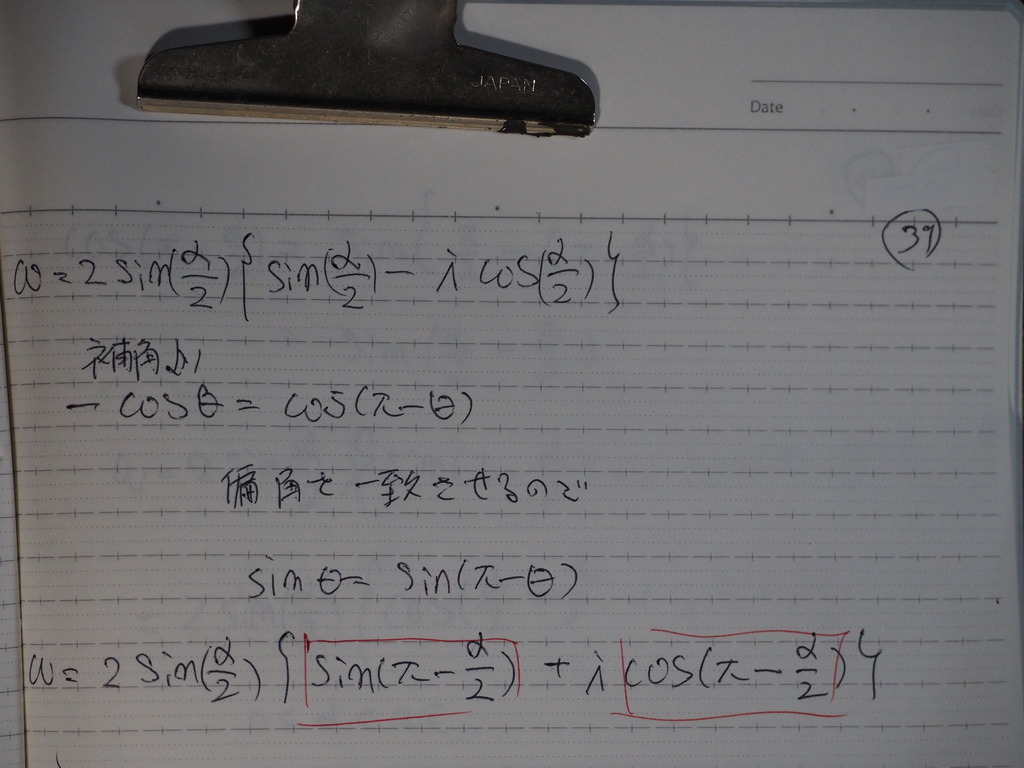 JAPAN
Date
39
ω = 2 sin(α/2) { sin(α/2) - i cos(α/2) }
補角より
- cosθ = cos(π-θ)
偏角を一致させるので
sinθ = sin(π-θ)
ω = 2 sin(α/2) { sin(π-α/2) + i cos(π-α/2) }